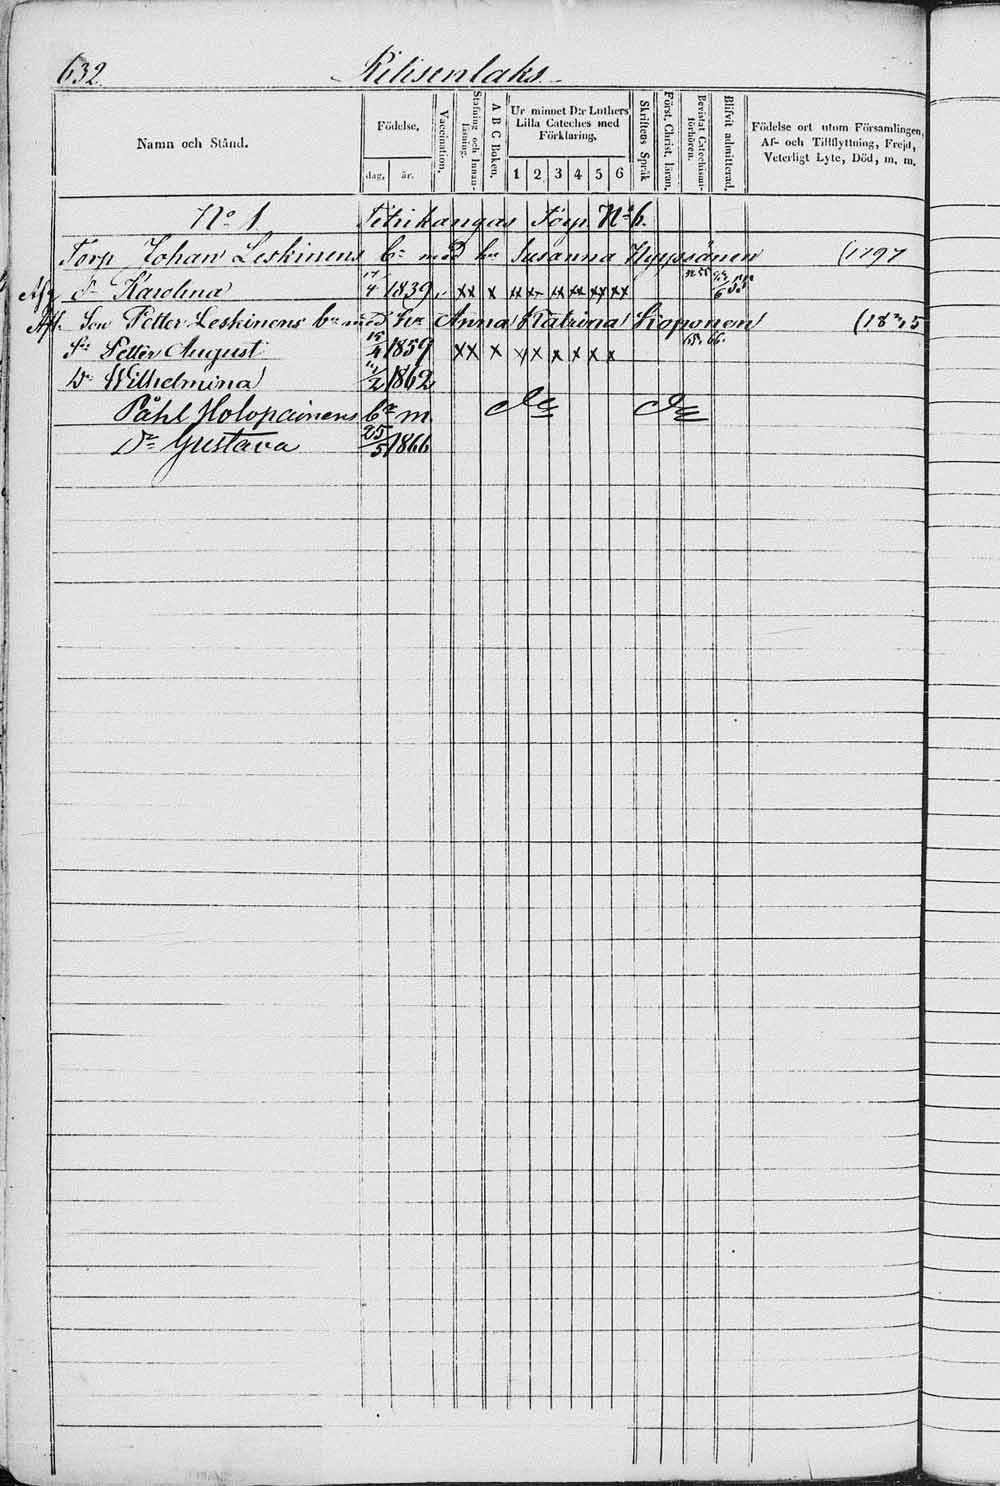 632. Ritisenlaks.
Namn och Stånd.
Födelse,
dag, år.
Vaccination.
Stafning och Innan-läsning.
A B C Boken.
Ur minnet D:r Luthers Lilla Cateches med Förklaring.
1 2 3 4 5 6
Skriftens Språk
Först. Christ. läran.
Bevistat Catechismi-förhören.
Blifvit admitterad.
Födelse ort utom Församlingen, Af- och Tillflyttning, Frejd, Veterligt Lyte, Död, m. m.
No 1 Titrikangas Torp No 6.
Torp Johan Leskinens br med hu Susanna Hyyppänen (1797
Karolina 4 1839 xx x xx xx xx xx xx 6 55
Son Petter Leskinens br med hu Anna Katrina Koponen (1835
Sn Petter August 15/4 1859 xx x x x x x x x 65. 66.
Dr Wilhelmina 2 1862
Påhl Holopainens br m.
Dr Gustava 25/5 1866